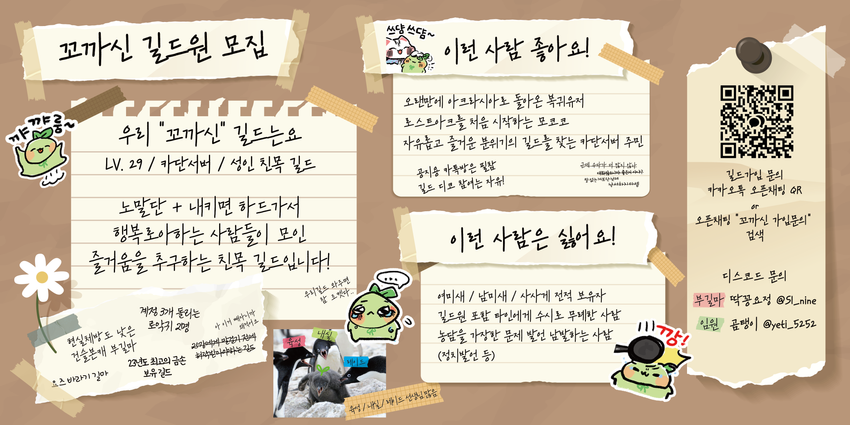 꼬까신 길드원 모집
꺄꺄륭~
우리 "꼬까신" 길드는요
LV. 29 / 카단서버 / 성인 친목 길드
노말단 + 내키면 하드가서
행복로아하는 사람들이 모인
즐거움을 추구하는 친목 길드입니다!
우리길드 와우면
밥
현실체방도 낮은
건슬분배 부길마
요즈 바라기 길마
계정 3개 돌리는
로악귀 2명
23년도 최고의 금손
보유 길드
육성
내실
레이드
육성 / 내실 / 레이드 선생님 많음
쓰담쓰담~
이런 사람 좋아요!
오랜만에 아크라시아로 돌아온 복귀유저
로스트아크를 처음 시작하는 모코코
자유롭고 즐거운 분위기의 길드를 찾는 카단서버 주민
공지용 카톡방은 필참
길드 디코 참여는 자유!
이런 사람은 싫어요!
여미새 / 남미새 / 사사게 전적 보유자
길드원 포함 타인에게 수시로 무례한 사람
농담을 가장한 문제 발언 남발하는 사람
(정치발언 등)
깡!
길드가입 문의
카카오톡 오픈채팅 QR
or
오픈채팅 "꼬까신 가입문의"
검색
디스코드 문의
부길마 딱꽁요정 @51_nine
임원 곰팽이 @yeti_5252